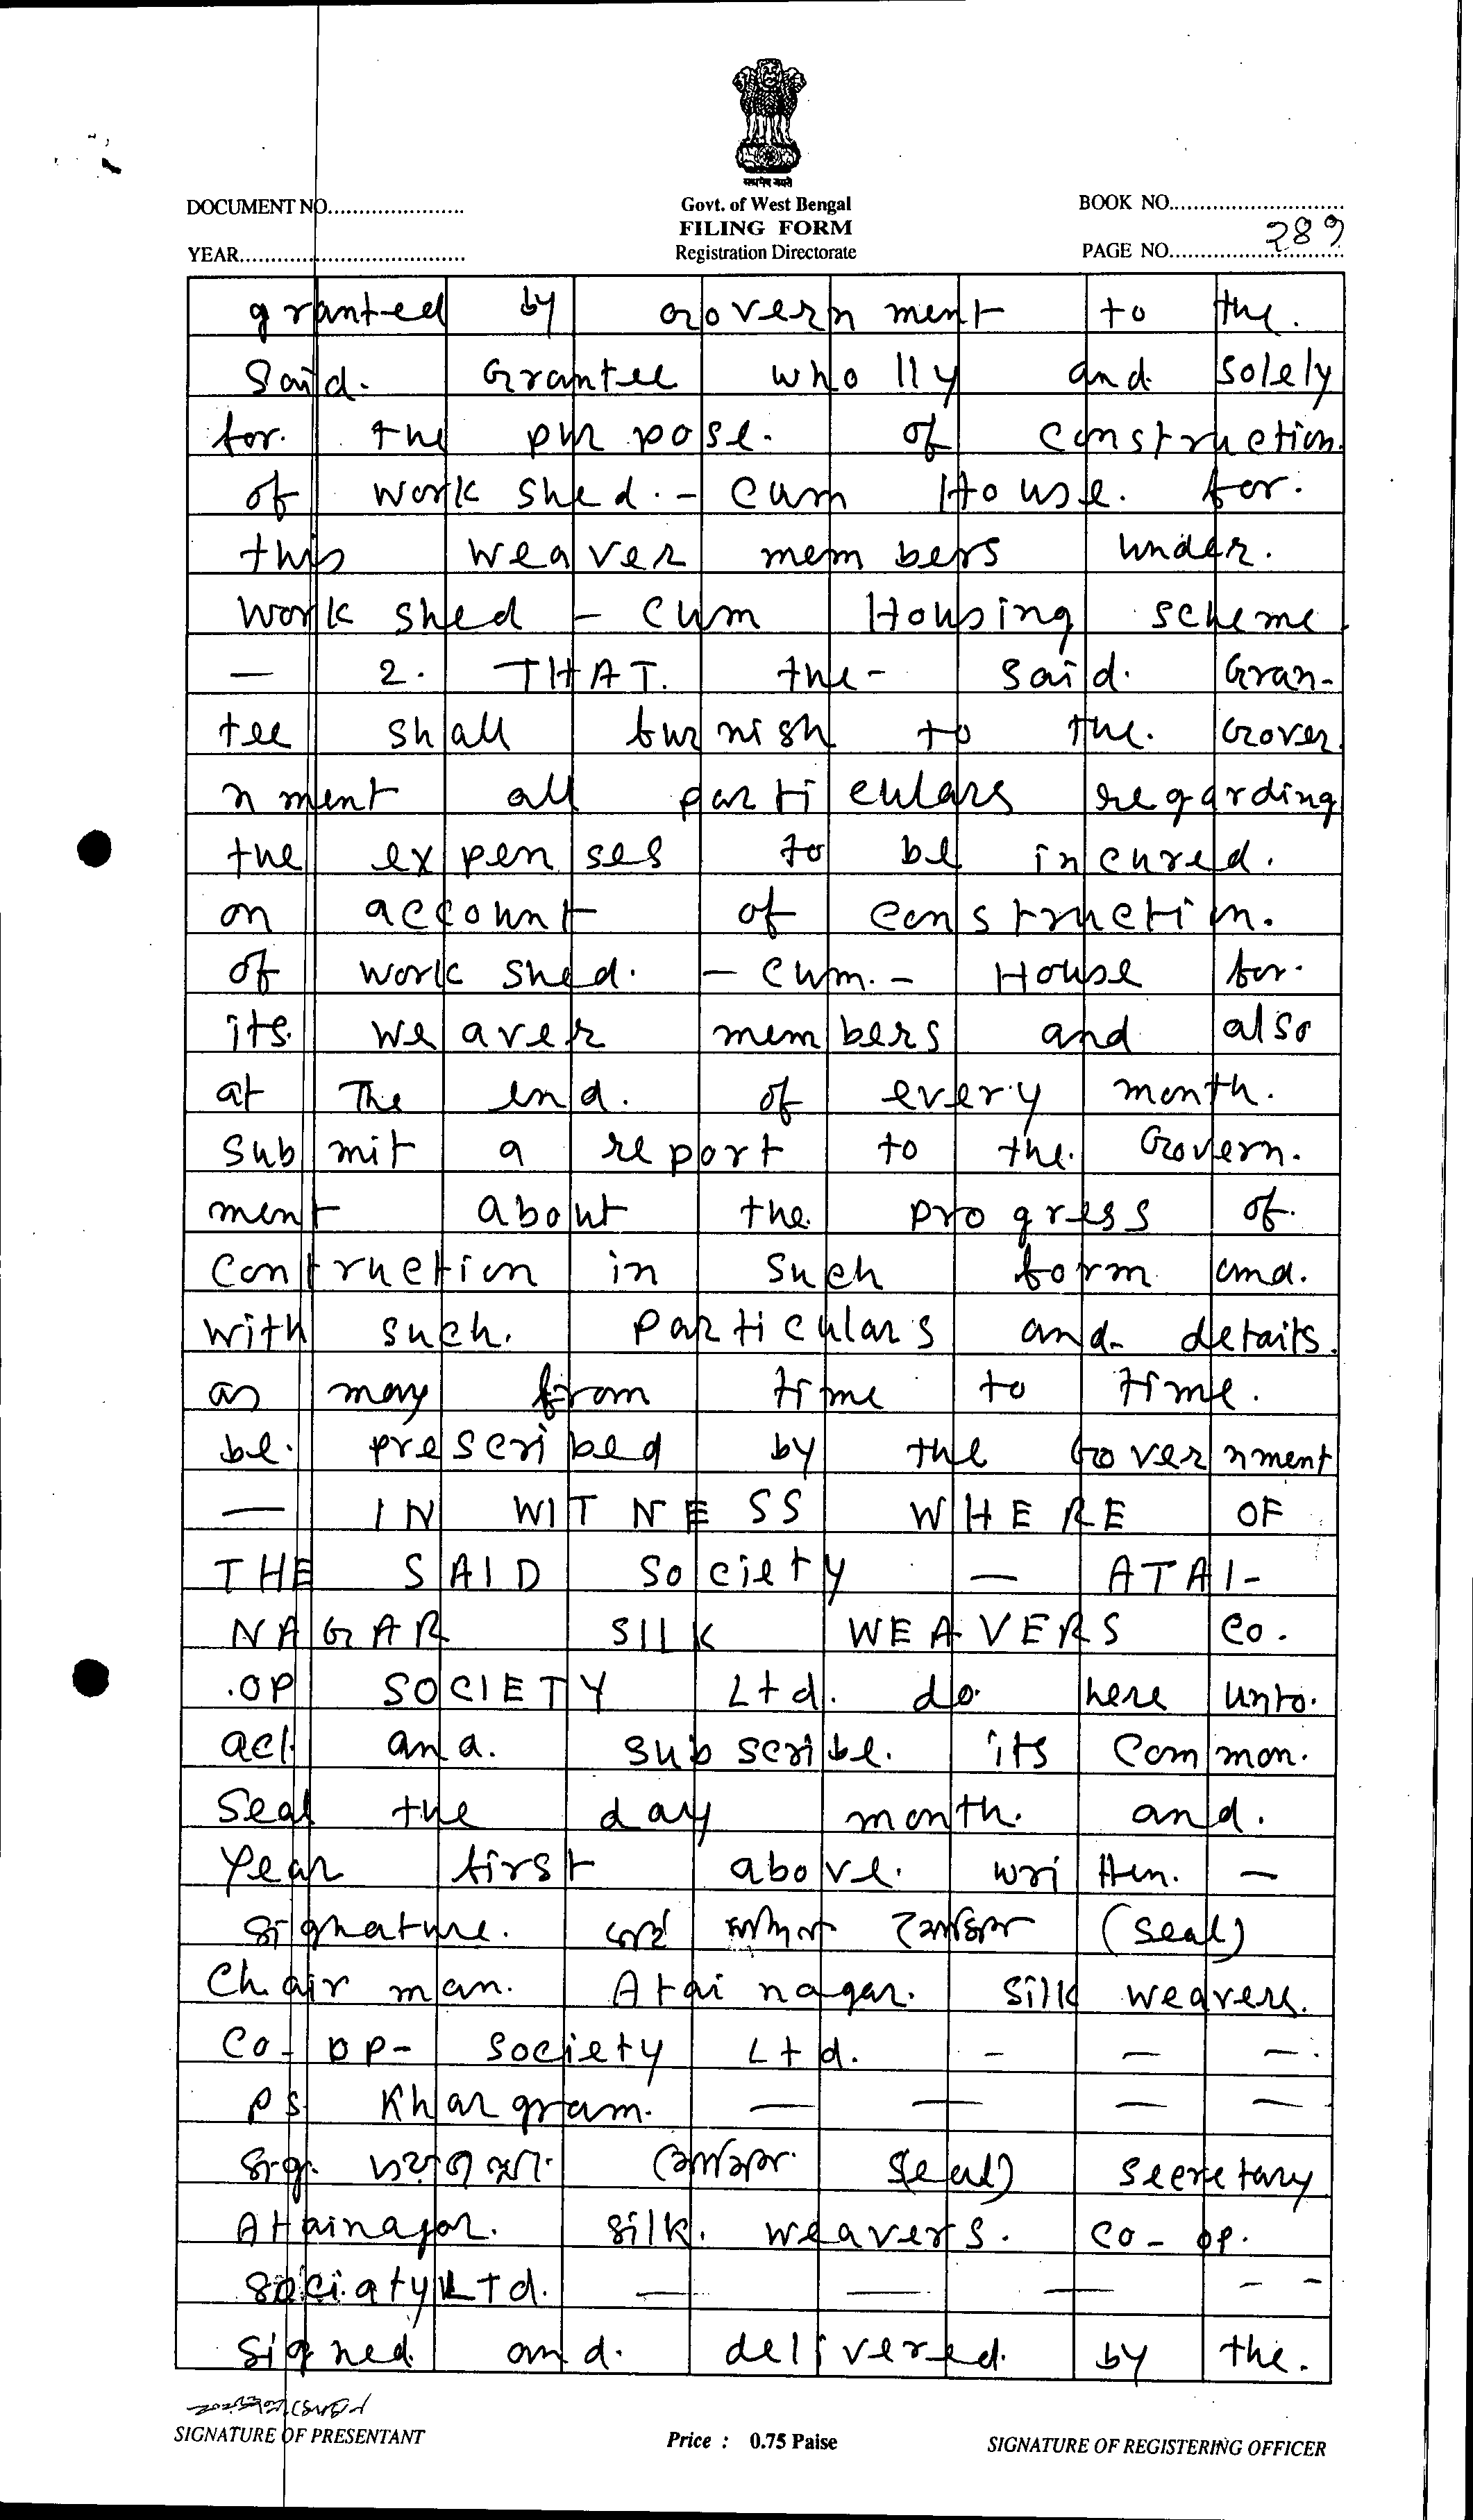 सत्यमेव जयते
DOCUMENT NO......................
Govt. of West Bengal
BOOK NO............................
FILING FORM
YEAR....................................
Registration Directorate
PAGE NO............................
granted by Government to the.
Said. Grantee who lly and solely
for. the pur pose. of construction.
of work shed. - cum House. for.
this weaver mem bers under.
work shed - cum Housing scheme.
— 2. THAT. the- said. Gran-
tee shall fur nish to the. Gover
nment all parti culars regarding
the expen ses to be incured.
on account of construction.
of work shed. - cum. - House for.
its. weaver members and also
at The end. of every month.
Sub mit a report to the. Govern.
ment about the. progress of.
Contruction in such form and.
with such. particulars and- details.
as may from time to time.
be. prescribed by the Government
— IN WITNESS WHERE OF
THE SAID Society — ATAI-
NAGAR SILK WEAVERS Co.
.OP SOCIETY Ltd. do. here unto.
act and. subscribe. its Common.
Seal the day month. and.
Year first above. written. —
Signature. (seal)
Chair man. Atai nagar. Silk weavers.
Co- op- society Ltd. — — —.
P S Khargram. — — — —
Sig. (Seal) Secretary
Atainagar. Silk. weavers. co- op.
Sociaty Ltd. — — — — —
Signed and. delivered. by the.
SIGNATURE OF PRESENTANT
Price : 0.75 Paise
SIGNATURE OF REGISTERING OFFICER